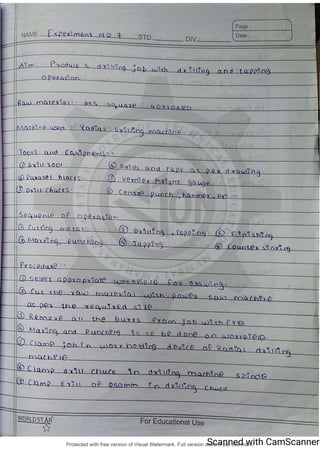 Page :
Date :
NAME: Experiment No 7 STD.: DIV.:
Aim: Produce a drilling job with drilling and tapping
operation.
Raw material: MS square 40x50x20
Machine used :- Radial Drilling machine
Tools and Equipments:-
① Drill tool ④ Drills and Taps as per drawing
② Paralel blocks ⑤ vernier height gauge
③ Drill chucks ⑥ Centre punch, hammer, etc
Sequence of Operation
① Cutting metal ③ Drilling, Tapping ⑤ Finishing
② Marking, Punching ④ Tapping ⑥ Counter sinking
Procedure :-
① Select appropriate workpiece for drawing.
② Cut the raw material with power saw machine
as per the required size
③ Remove all the burrs from job with file
④ Marking and Punching is to be done on workpiece
⑤ Clamp job in work holding device of Radial drilling
machine
⑥ Clamp drill chuck in drilling machine spindle
⑦ Clamp drill of Ø8omm in drilling chuck
WORLD STAR
For Educational Use
Scanned with CamScanner
Protected with free version of Visual Watermark. Full version